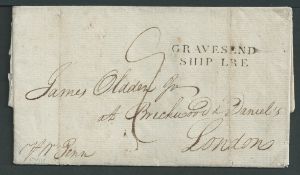 GRAVESEND
SHIP LRE
James Oladen Esqr
at Brickwood & Daniel's
London
Penn